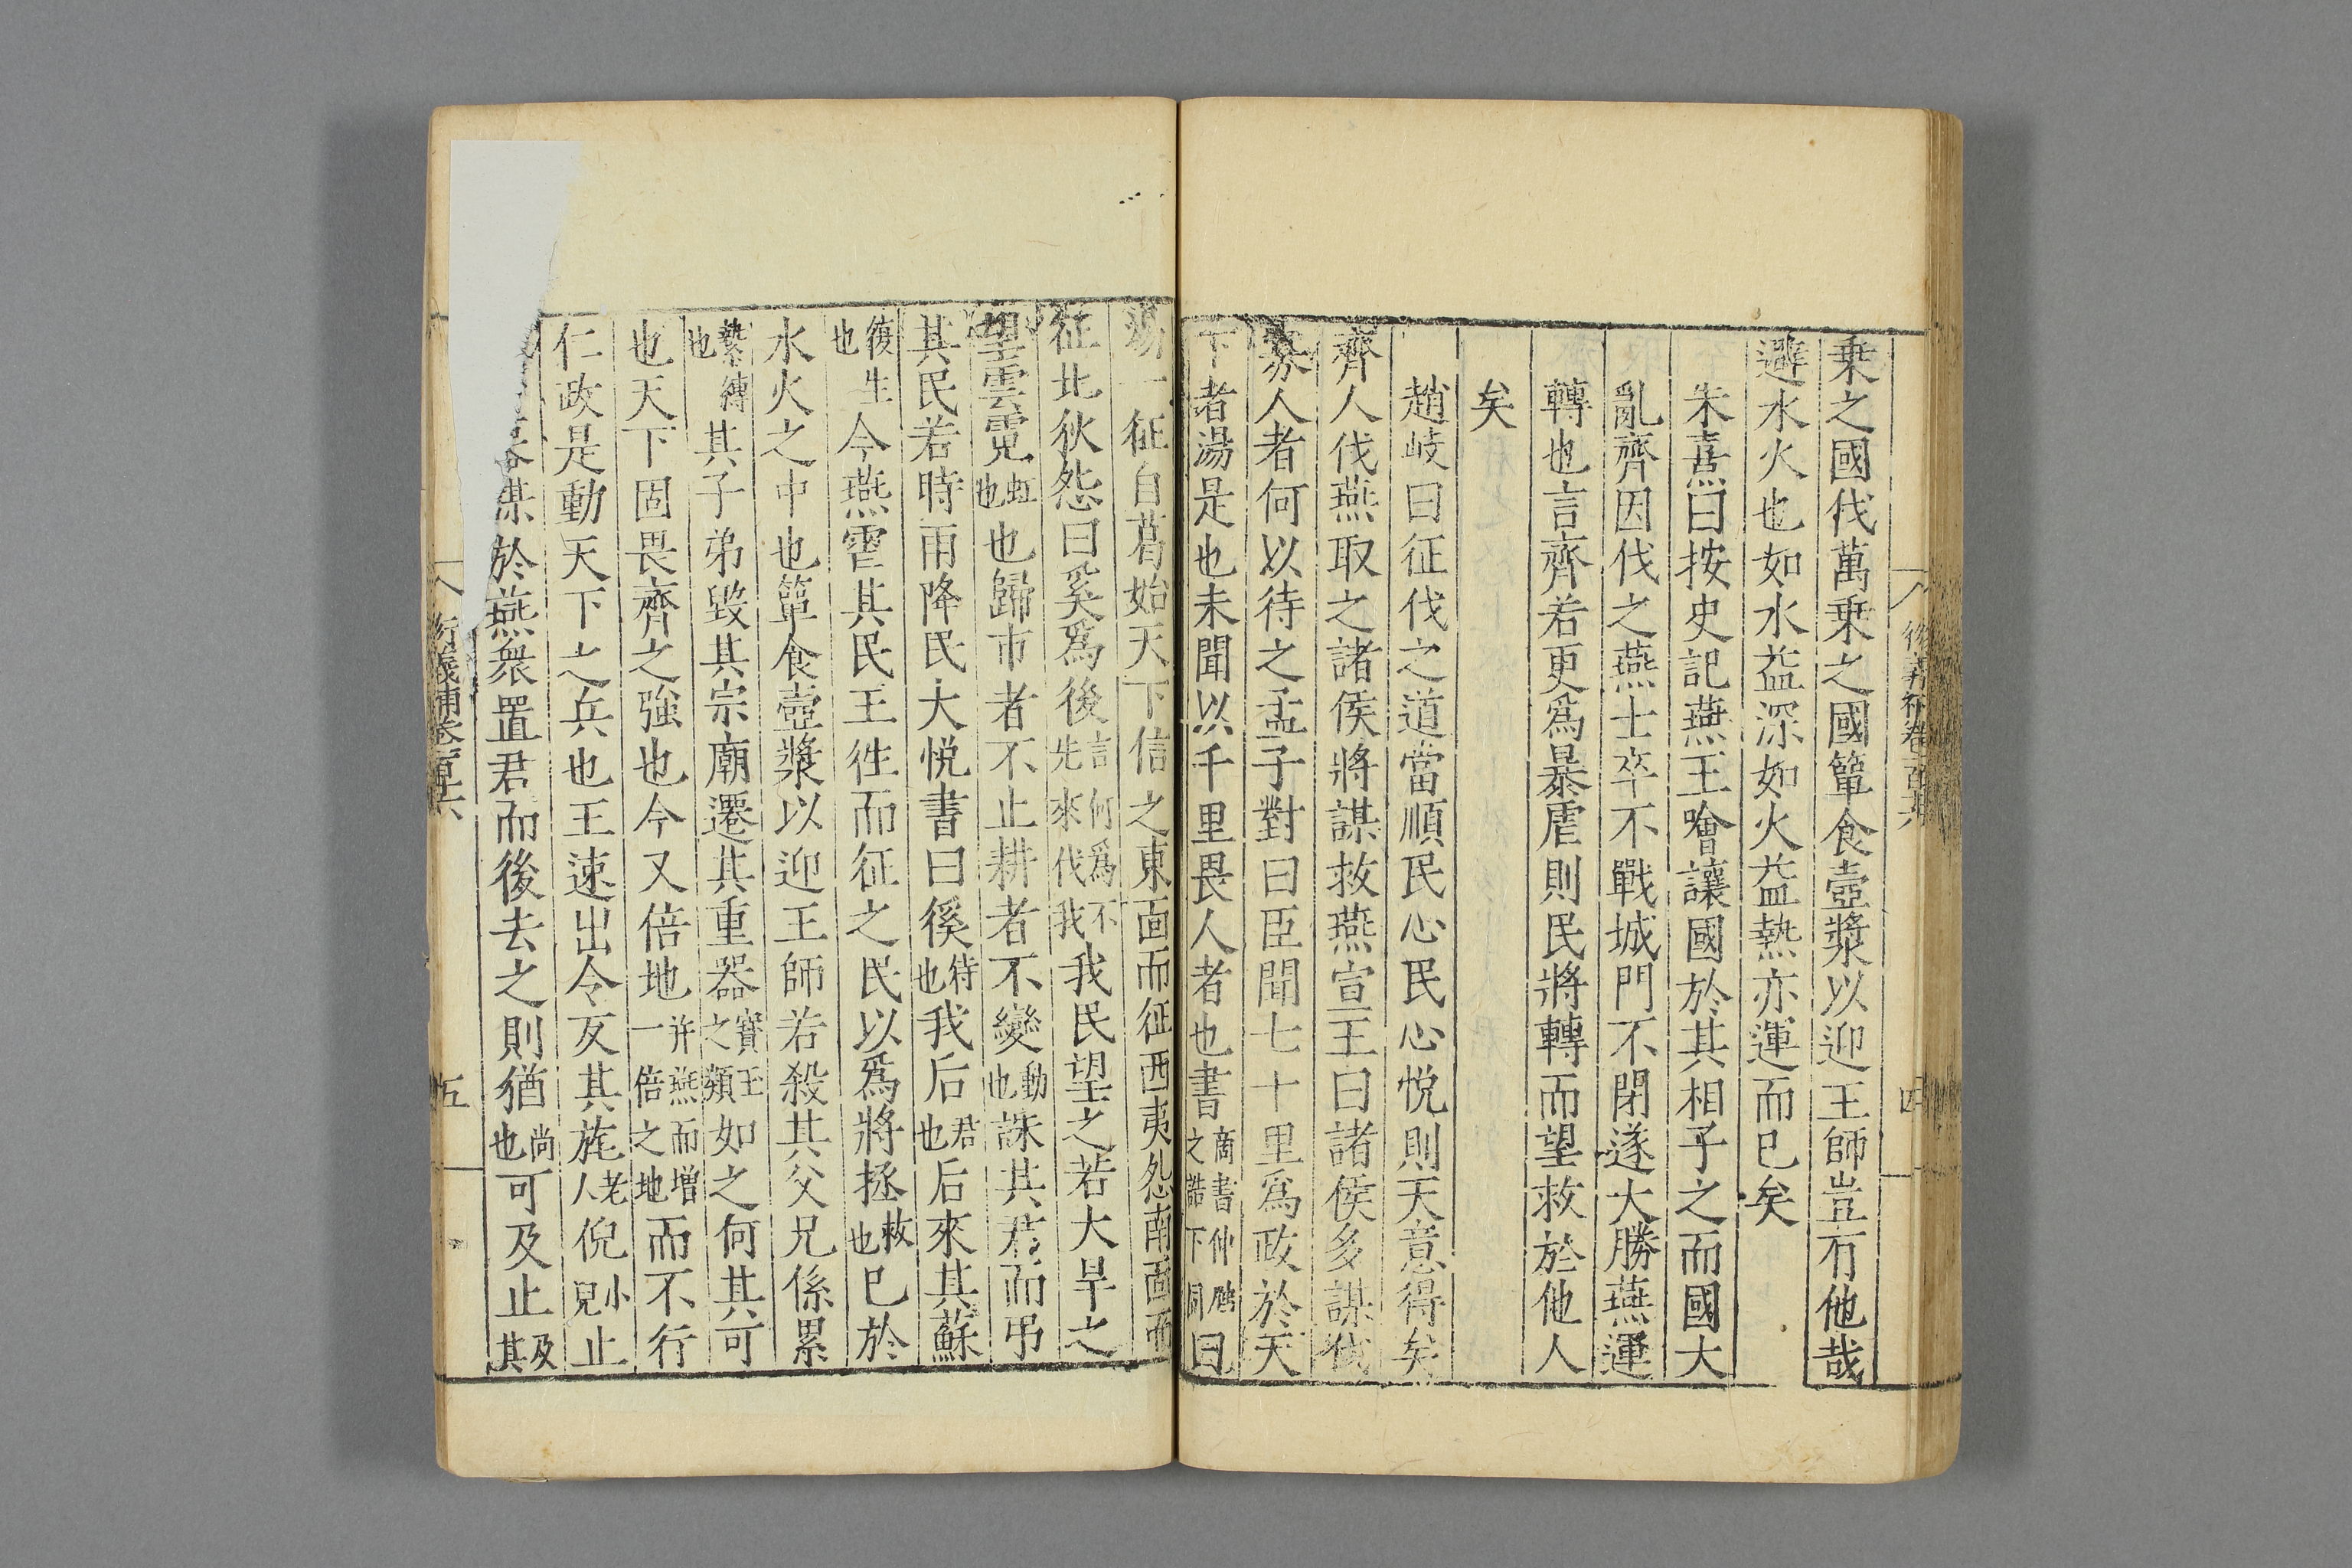 乗之國伐萬乗之國簞食壺漿以迎王師豈有他哉
避水火也如水益深如火益熱亦運而已矣
朱熹曰按史記燕王噲讓國於其相子之而國大
亂齊因伐之燕士卒不戰城門不閉遂大勝燕運
轉也言齊若更爲暴虐則民將轉而望救於他人
矣
趙岐曰征伐之道當順民心民心悅則天意得矣
齊人伐燕取之諸侯將謀救燕宣王曰諸侯多謀伐
寡人者何以待之孟子對曰臣聞七十里爲政於天
下者湯是也未聞以千里畏人者也書商書仲虺之誥下同曰
湯一征自葛始天下信之東面而征西夷怨南面而
征北狄怨曰奚爲後言何爲不先來伐我我民望之若大旱之
望雲霓虹也也歸市者不止耕者不變動也誅其君而弔
其民若時雨降民大悅書曰徯待也我后君也后來其蘇
復生也今燕虐其民王徃而征之民以爲將拯救也已於
水火之中也簞食壺漿以迎王師若殺其父兄係累
縶縛也其子弟毀其宗廟遷其重器寶王之類如之何其可
也天下固畏齊之強也今又倍地并燕而增一倍之地而不行
仁政是動天下之兵也王速出令反其旄老人倪小兒止
謀於燕衆置君而後去之則猶尚也可及止及其
衍義補卷百六
五
四